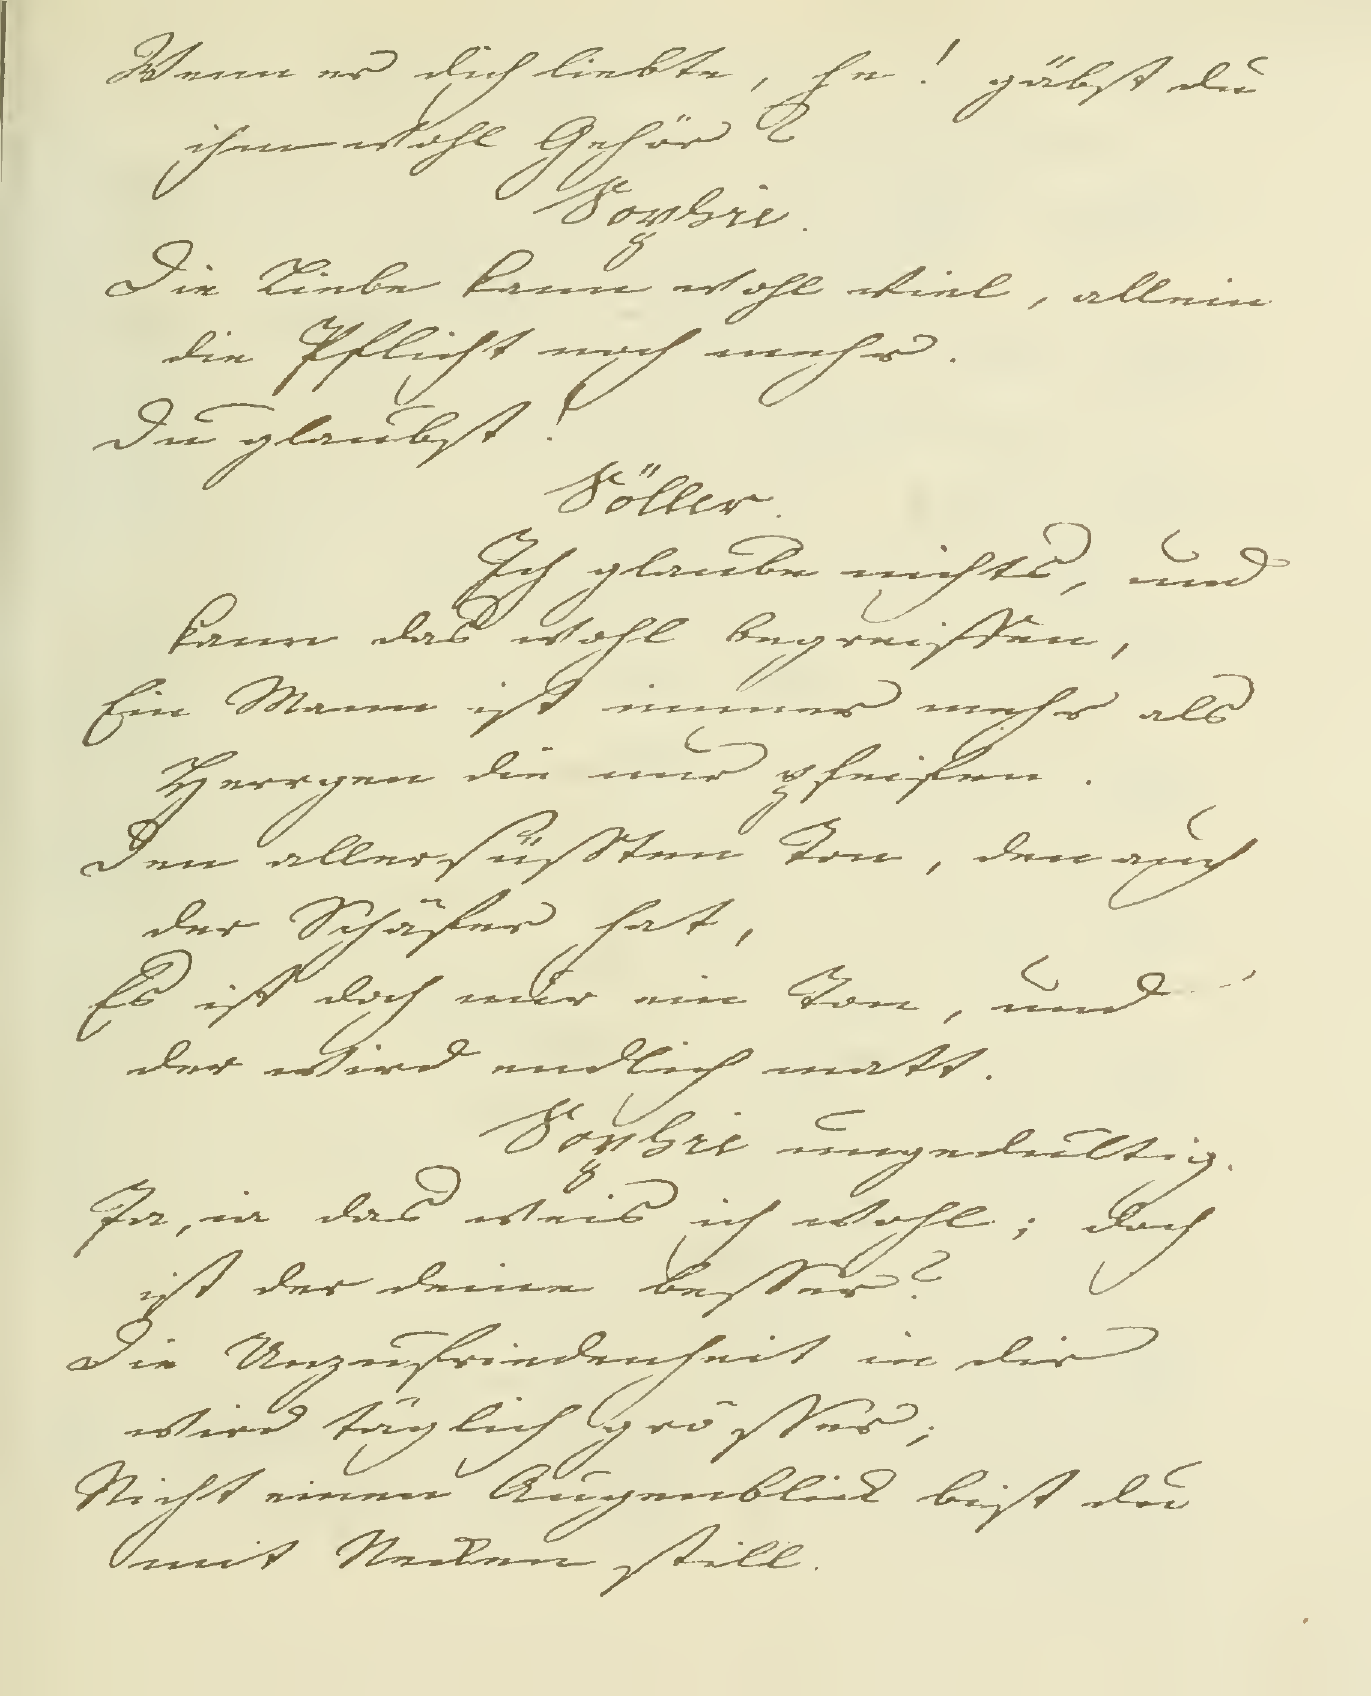 Wenn er dich liebte, he! gäbst du
ihm wohl Gehör?
Sophie.
Die Liebe kann wohl viel, allein
die Pflicht noch mehr.
Du glaubst!
Söller.
Ich glaube nichts, und
kann das wohl begreiffen,
Ein Mann ist immer mehr als
Herrgen die nur pfeifen.
Den allersüßten Ton, den auch
der Schäfer hat,
Es ist doch nur ein Ton, und
der wird endlich matt.
Sophie ungedultig.
Ja, ia das weis ich wohl; doch
ist der deine besser?
Die Unzufriedenheit in dir
wird täglich grösser;
Nicht einen Augenblick bist du
mit Necken still.